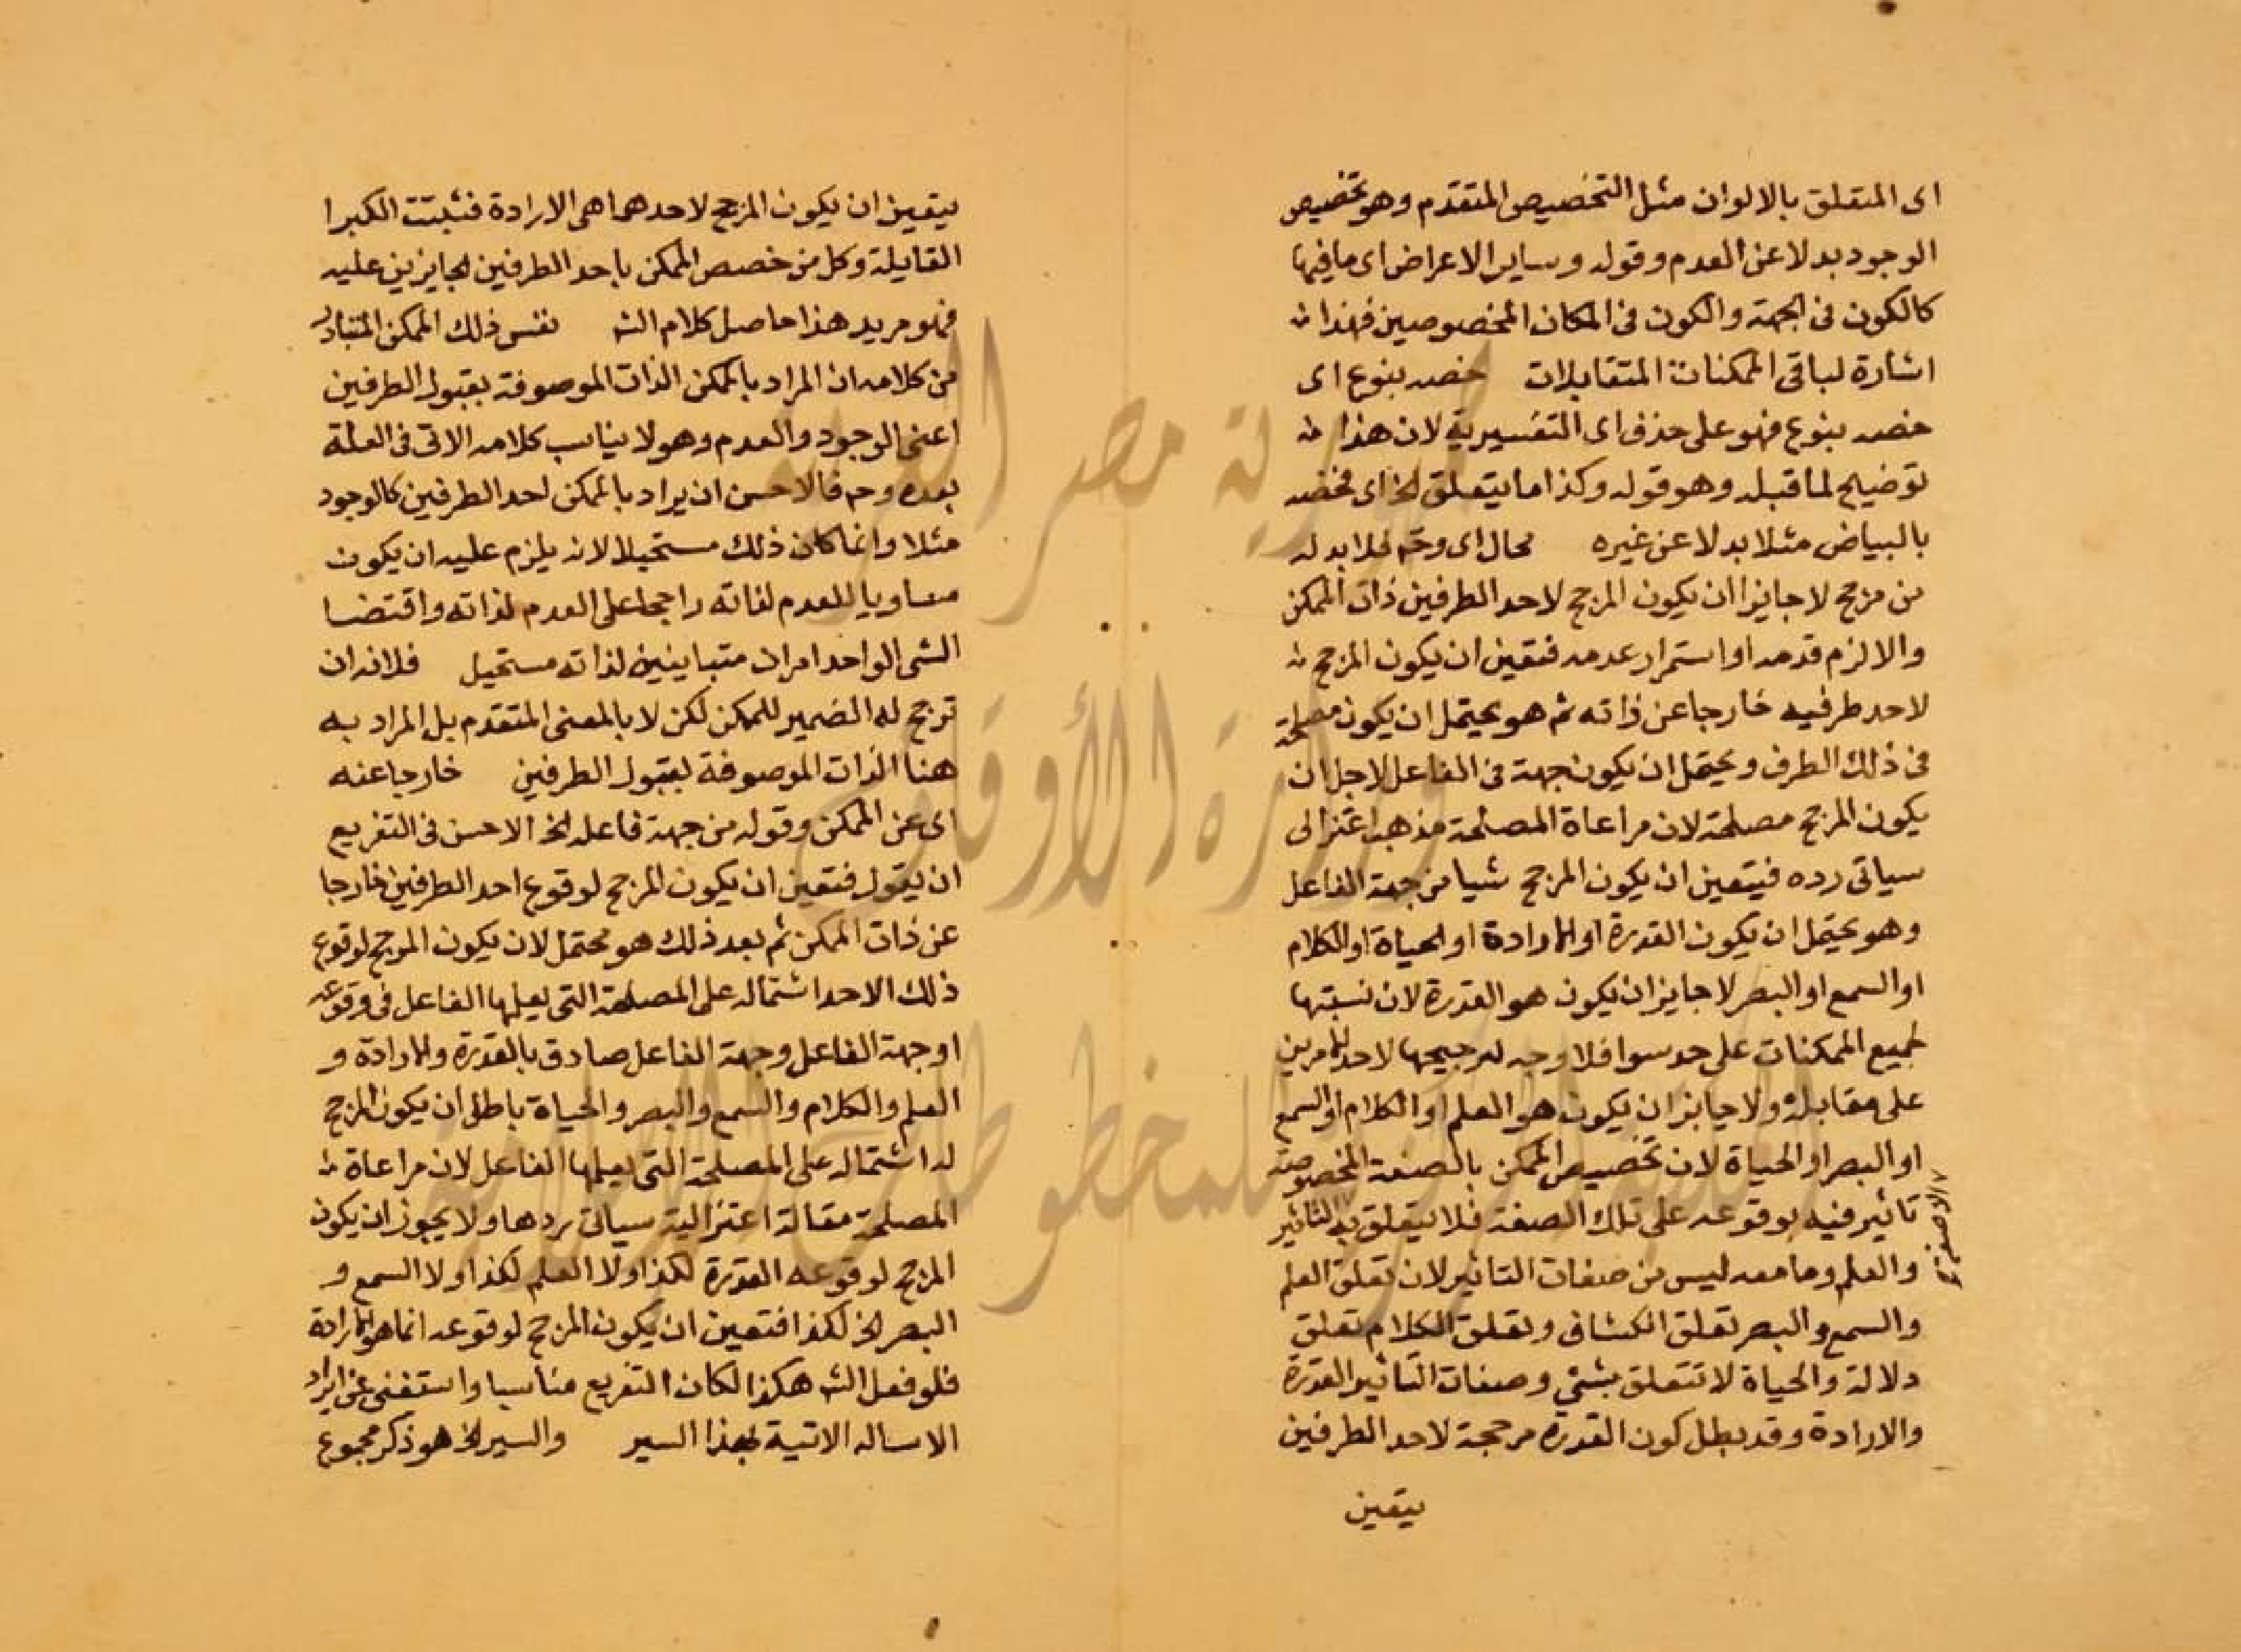 اى المتعلق بالالوان مثل التخصيص المتقدم وهو تخصيص
الوجود بدلا عن العدم وقوله وساير الاعراض اى ما فيها
كالكون فى الجهة والكون فى المكان المخصوصين فهذا
اشارة لباقى الممكنات المتقابلات خصه بنوع اى
خصه بنوع فهو على حذف اى التفسيرية لان هذا
توضيح لما قبله وهو قوله وكذا ما يتعلق الخ اى فخصه
بالبياض مثلا بدلا عن غيره محال اى وح فلا بد له
من مرجح لا جايزا ان يكون المرجح لاحد الطرفين ذات الممكن
والا لزم قدمه او استمرار عدمه فتعين ان يكون المرجح
لاحد طرفيه خارجا عن ذاته ثم هو يحتمل ان يكون مصلحة
فى ذلك الطرف ويحتمل ان يكون جهة فى الفاعل لاجل ان
يكون المرجح مصلحة لان مراعاة المصلحة مذهب اعتزالى
سياتى رده فيتعين ان يكون المرجح شيا من جهة الفاعل
وهو يحتمل ان يكون القدرة او الارادة او الحياة او الكلام
او السمع او البصر لا جايز ان يكون هو القدرة لان نسبتها
لجميع الممكنات على حد سوا فلا وجه لترجيحها لاحد الامرين
على مقابله ولا جايز ان يكون هو العلم او الكلام او السمع
او البصر او الحياة لان تخصيص الممكن بالصفة المخصوصة
تاثير فيه بوقوعه على تلك الصفة فلا يتعلق به التاثير
والعلم وما معه ليس من صفات التاثير لان تعلق العلم
والسمع والبصر تعلق انكشافى وتعلق الكلام تعلق
دلالة والحياة لا تتعلق بشئ وصفات التاثير القدرة
والارادة وقد بطل كون القدرة مرجحة لاحد الطرفين
يتعين
يتعين ان يكون المرجح لاحدهما هى الارادة فثبتت الكبرا
القايلة وكل من خصص الممكن باحد الطرفين الجايزين عليه
فهو مريد هذا حاصل كلام الش نفس ذلك الممكن المتبادر
من كلامه ان المراد بالممكن الذات الموصوفة بقبول الطرفين
اعنى الوجود والعدم وهو لا يناسب كلامه الاتى فى العلة
بعده وح فالاحسن ان يراد بالممكن احد الطرفين كالوجود
مثلا وانما كان ذلك مستحيلا لانه يلزم عليه ان يكون
مساويا للعدم لذاته راجحا على العدم لذاته واقتضا
الشى الواحد امران متباينين لذاته مستحيل فلانه ان
ترجح له الضمير للممكن لكن لا بالمعنى المتقدم بل المراد به
هنا الذات الموصوفة بقبول الطرفين خارجا عنه
اى عن الممكن وقوله من جهة فاعله الخ الاحسن فى التفريع
ان يقول فتعين ان يكون المرجح لوقوع احد الطرفين خارجا
عن ذات الممكن ثم بعد ذلك هو محتمل لان يكون المرجح لوقوع
ذلك الاحد اشتماله على المصلحة التى يعلمها الفاعل فى وقوعه
او جهة الفاعل وجهة الفاعل صادق بالقدرة والارادة و
العلم والكلام والسمع والبصر والحياة باطل ان يكون المرجح
له اشتماله على المصلحة التى يعلمها الفاعل لان مراعاة
المصلحة مقالة اعتزالية سياتى ردها ولا يجوز ان يكون
المرجح لوقوعه القدرة لكذا ولا العلم لكذا ولا السمع و
البصر الخ لكذا فتعين ان يكون المرجح لوقوعه انما هو الارادة
فلو فعل الش هكذا لكان التفريع مناسبا واستغنى عن ايراد
الاساله الاتية لهذا السير والسير الخ هو ذكر مجموع
جمهورية مصر العربية
وزارة الأوقاف
المكتبة المركزية للمخطوطات الإسلامية